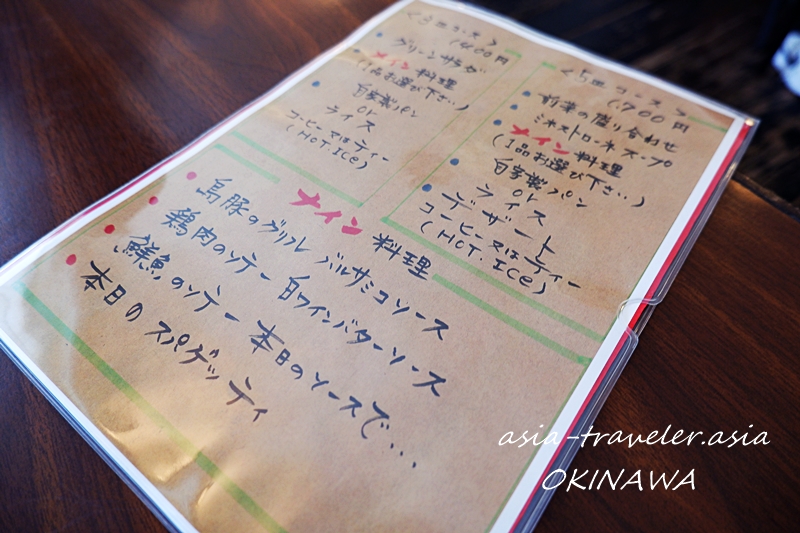 ＜3皿コース＞
1400円
・グリーンサラダ
・メイン料理
(1品お選び下さい)
・自家製パン
or
ライス
コーヒー又はティー
(HOT.ICe)
＜5皿コース＞
1.700円
・前菜の盛り合わせ
・ミネストローネスープ
・メイン料理
(1品お選び下さい)
・自家製パン
or
ライス
・デザート
コーヒー又はティー
(HOT.ICe)
メイン料理
・島豚のグリル バルサミコソース
・鶏肉のソテー 白ワインバターソース
・鮮魚のソテー 本日のソースで…
・本日のスパゲッティ
asia-traveler.asia
OKINAWA